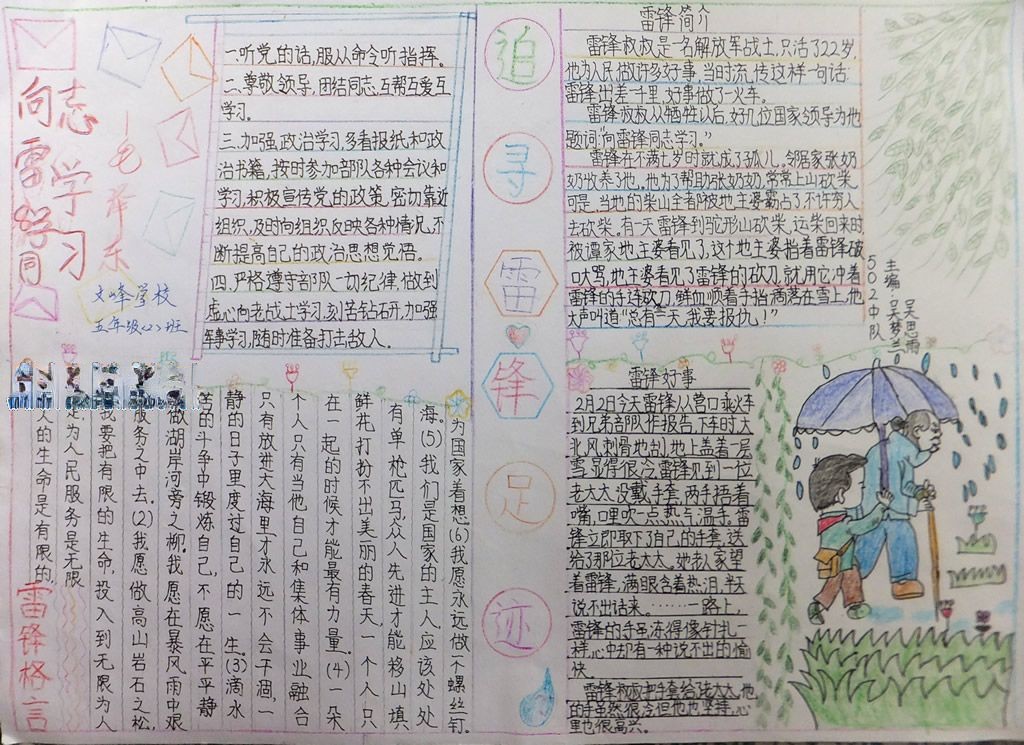 向雷锋同志学习
—毛泽东
文峰学校
五年级(2)班
一.听党的话,服从命令听指挥。
二.尊敬领导,团结同志,互帮互爱互
学习。
三.加强政治学习,多看报纸和政
治书籍,按时参加部队各种会议和
学习,积极宣传党的政策,密切靠近
组织,及时向组织反映各种情况,不
断提高自己的政治思想觉悟。
四.严格遵守部队一切纪律,做到
虚心向老战士学习,刻苦钻石开,加强
军事学习,随时准备打击敌人。
雷锋格言
人的生命是有限的,
是为人民服务是无限
我要把有限的生命,投入到无限为人
服务之中去,(2)我愿做高山岩石之松,
做湖岸河旁之柳,我愿在暴风雨中艰
苦的斗争中锻炼自己,不愿在平平静
静的日子里度过自己的一生。(3)滴水
只有放进大海里才永远不会干涸,一
个人只有当他自己和集体事业融合
在一起的时候才能最有力量。(4)一朵
鲜花打扮不出美丽的春天,一个人只
有单枪匹马,众人先进才能移山填
海。(5)我们是国家的主人,应该处处
为国家着想。(6)我愿永远做一个螺丝钉。
追寻雷锋足迹
雷锋简介
雷锋叔叔是一名解放军战士,只活了22岁,
他为人民做许多好事,当时流传这样一句话:
雷锋出差一千里,好事做了一火车。
雷锋叔从牺牲以后,好几位国家领导为他
题词:“向雷锋同志学习。”
雷锋在不满七岁时就成了孤儿,邻居家张奶
奶收养了他。他为了帮助张奶奶,常常上山砍柴,
可是,当地的柴山全都被地主婆霸占了不许穷人
去砍柴。有一天雷锋到蛇形山砍柴,运柴回来时
被谭家地主婆看见了,这个地主婆指着雷锋破
口大骂,地主婆看见了雷锋的砍刀,就用它冲着
雷锋的手连砍刀,鲜血顺着手指滴落在雪上,他
大声叫道“总有一天,我要报仇!”
主编:吴梦兰 吴思雨
502中队
雷锋好事
2月2日今天雷锋从营口乘火车
到兄弟部队作报告,下车时,大
北风刺骨地刮,地上盖着一层
雪,显得很冷,雷锋见到一位
老太太没戴手套,两手捂着
嘴,口里吹一点热气温手。雷
锋立即取下了自己的手套,送
给了那位老太太。她老人家望
着雷锋,满眼含着热泪,半天
说不出话来。……一路上,
雷锋的手虽冻得像针扎一
样,心中却有一种说不出的愉
快。
雷锋叔叔把手套给老太太,他
的手虽然很冷但他也坚持,心
里也很高兴。